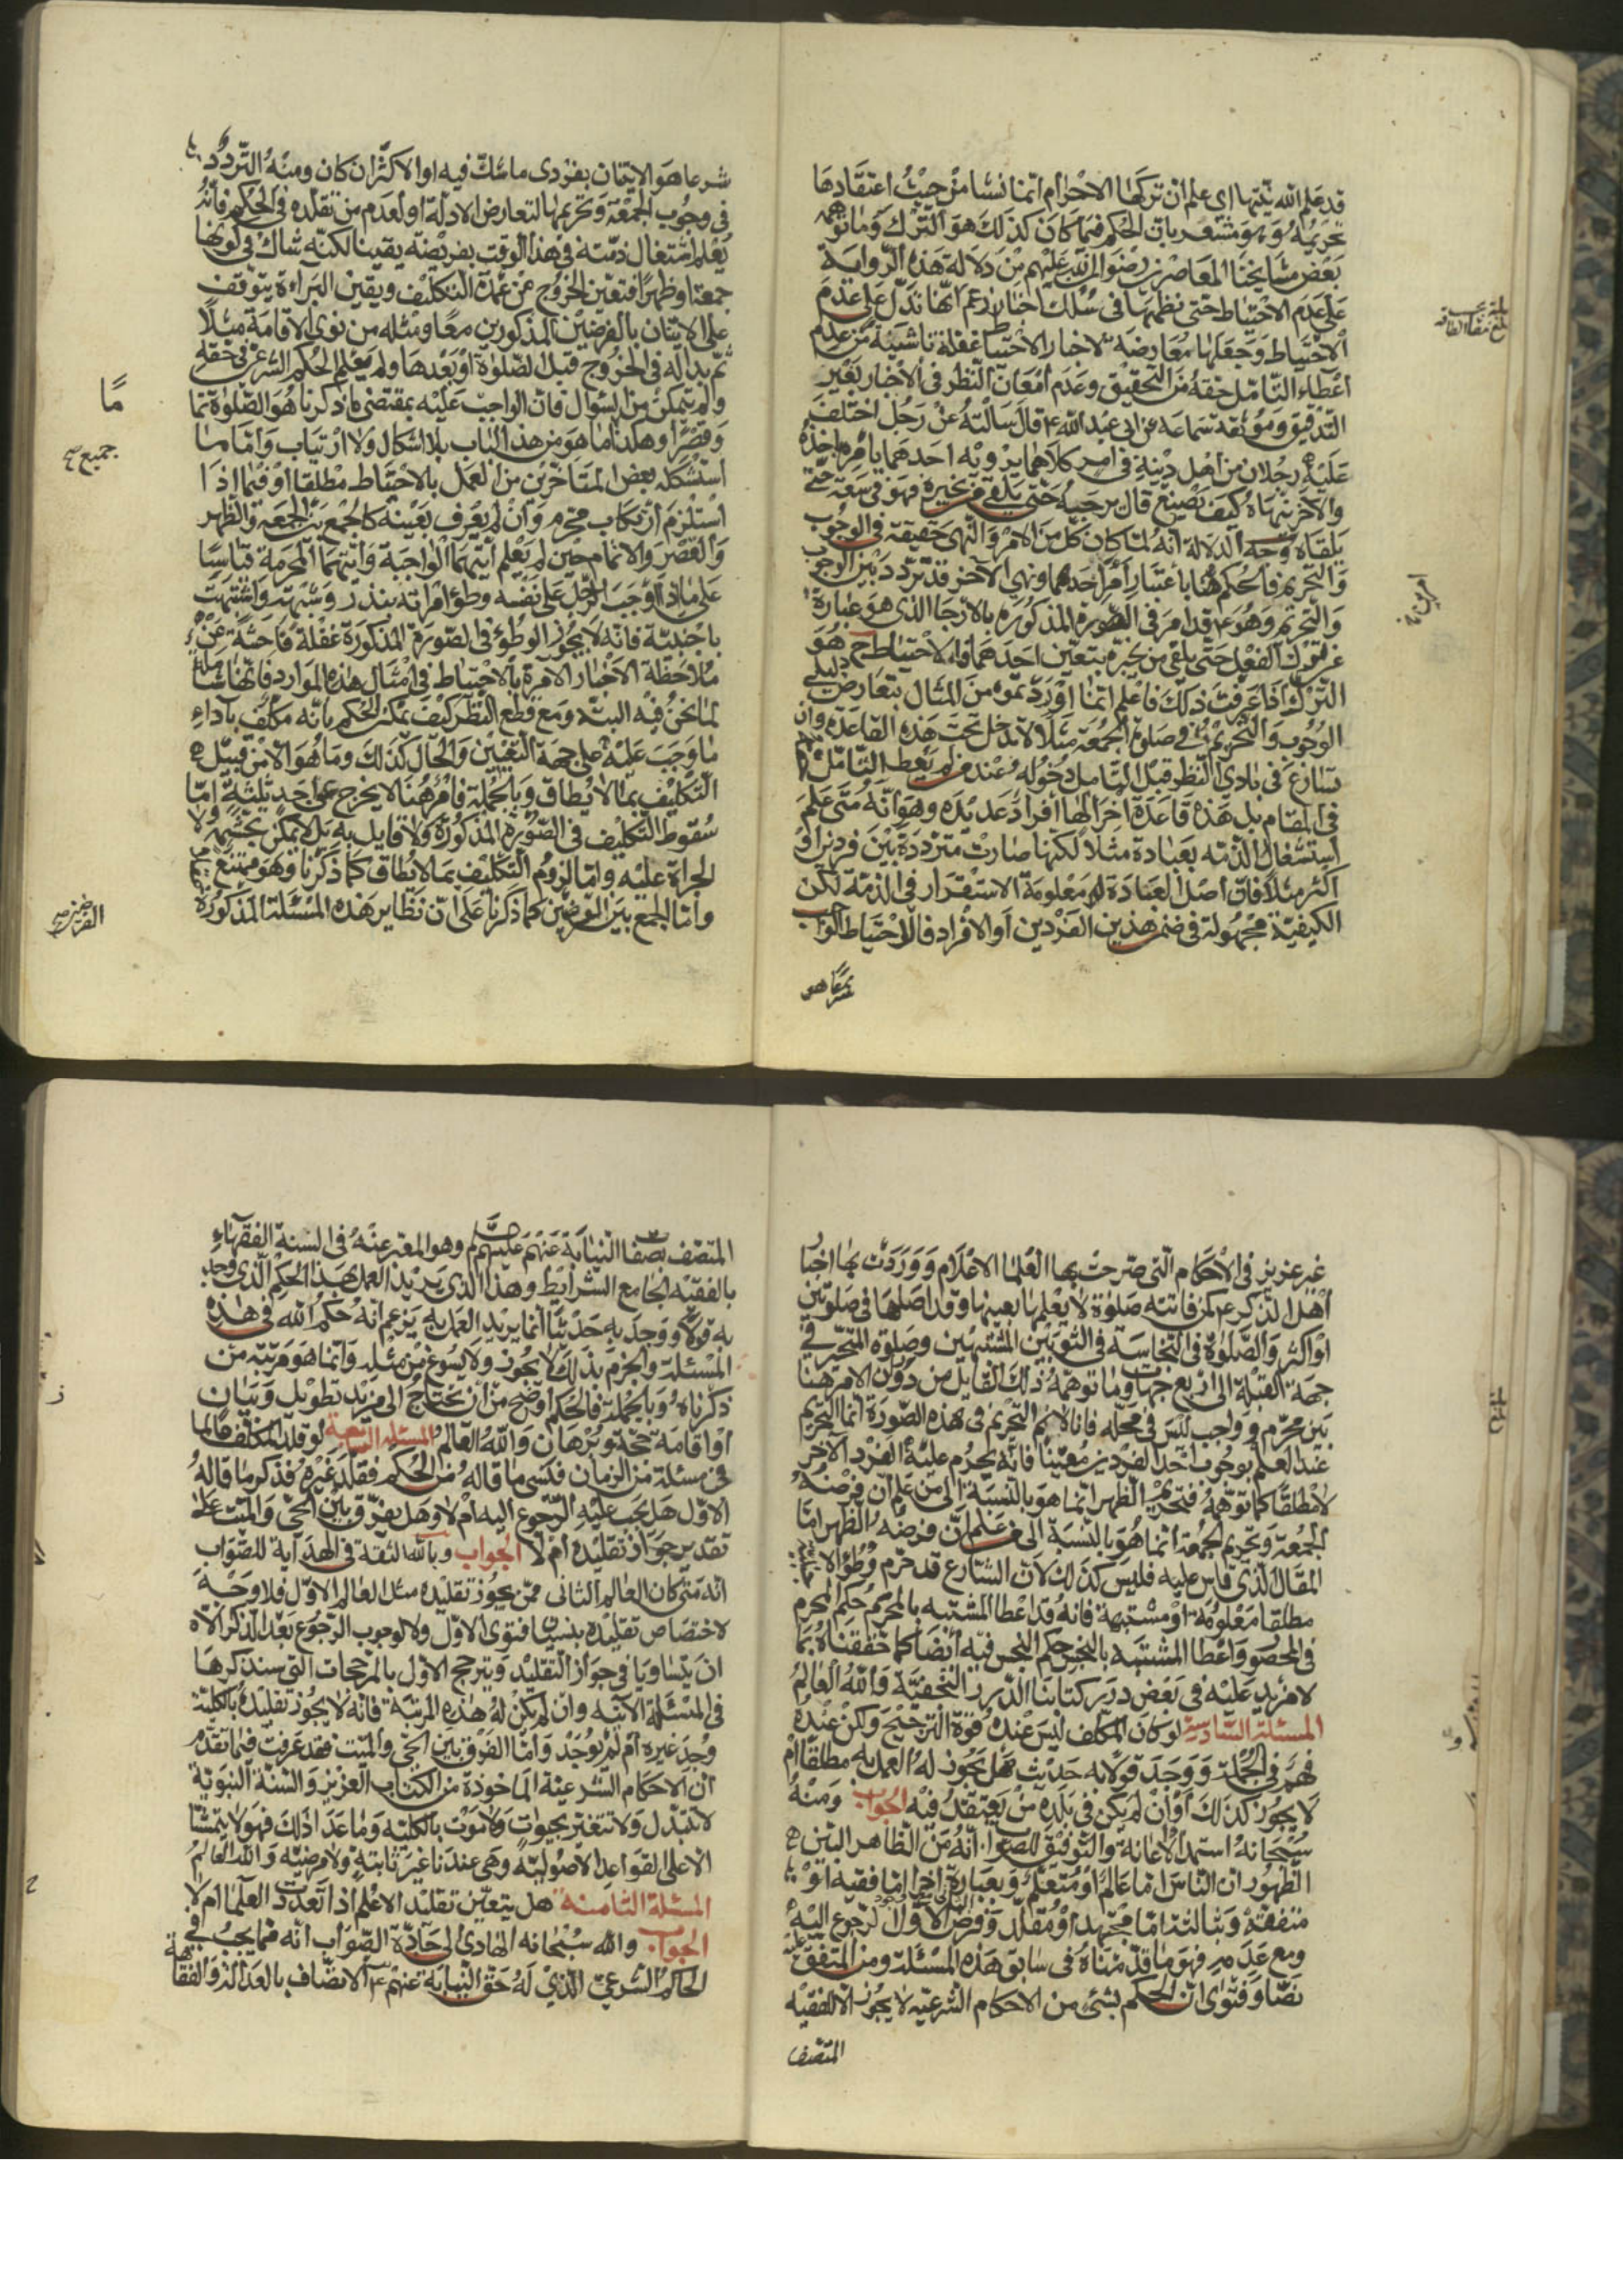 قد علم الله نيتها اي علم ان تركها الاحرام انما نشا من حيث اعتقادها
تحريمه وهو مشعر بان الحكم فيما كان كذلك هو الترك وما توهمه
بعض مشايخنا المعاصرين رضوان الله عليهم من دلالة هذه الرواية
على عدم الاحتياط حتى نظمها في سلك اخبار زعم انها تدل على عدم
الاحتياط وجعلها معارضة لاخبار الاحتياط غفلة ناشئة من عدم
اعطاء التامل حقه من التحقيق وعدم امعان النظر في الاخبار بعين
التدقيق وموثقة سماعة عن ابي عبد الله ع قال سالته عن رجل اختلف
عليه رجلان من اهل دينه في امر كلاهما يرويه احدهما يامر باخذه
والاخر ينهاه كيف يصنع قال يرجيه حتى يلقى من يخبره فهو في سعة حتى
يلقاه وجه الدلالة انه لما كان كل من الامر والنهي حقيقة في الوجوب
والتحريم فالحكم هنا باعتبار امر احدهما ونهي الاخر قد تردد بين الوجوب
والتحريم وهو ع قد امر في الصورة المذكورة بالارجا الذي هو عبارة
عن ترك الفعل حتى يلقى من يخبره بتعين احدهما فالاحتياط ح هو
الترك اذا عرفت ذلك فاعلم انما اوردتموه من المثال بتعارض دليلي
الوجوب والتحريم في صلوة الجمعة مثلا لا تدخل تحت هذه القاعدة وان
تسارع في بادي النظر قبل التامل دخوله عند من لم يعط التامل حقه
في المقام بل هذه قاعدة اخرى لها افراد عديدة وهو انه متى علم
اشتغال الذمة بعبادة مثلا لكنها صارت مترددة بين فردين او
اكثر مثلا فان اصل العبادة معلومة الاستقرار في الذمة لكن
الكيفية مجهولة في ضمن هذين الفردين او الافراد فالاحتياط الواجب
شرعا هو
شرعا هو الاتيان بفردي ما شك فيه او الاكثر ان كان ومنه التردد
في وجوب الجمعة وتحريمها لتعارض الادلة او لعدم من تقلده في الحكم فانه
يعلم اشتغال ذمته في هذا الوقت بفريضة يقينا لكنه شاك في كونها
جمعة او ظهرا فتعين الخروج عن عهدة التكليف ويقين البراءة يتوقف
على الاتيان بالفرضين المذكورين معا ومثله من نوى الاقامة مثلا
ثم بدا له في الخروج قبل الصلوة او بعدها ولم يعلم الحكم الشرعي في حقه
ولم يتمكن من السؤال فان الواجب عليه بمقتضى ما ذكرنا هو الصلوة تماما
وقصرا وهكذا ما هو من هذا الباب بلا اشكال ولا ارتياب واما ما
استشكله بعض المتاخرين من العمل بالاحتياط مطلقا او فيما اذا
استلزم ارتكاب محرم وان لم يعرف بعينه كالجمع بين الجمعة والظهر
والقصر والاتمام حين لم يعلم ايتهما الواجبة وايتهما المحرمة قياسا
على ما اذا اوجب الرجل على نفسه وطؤ امراته بنذر وشبهه واشتبهت
باجنبية فانه لا يجوز الوطؤ في الصورة المذكورة غفلة فاحشة عن
ملاحظة الاخبار الامرة بالاحتياط في امثال هذه الموارد فانها شاملة
لما نحن فيه البتة ومع قطع النظر كيف يمكن الحكم بانه مكلف باداء
ما وجب عليه على جهة التعيين والحال كذلك وما هو الا من قبيل
التكليف بما لا يطاق وبالجملة فامر هنا لا يخرج عن احد ثلثة اما
سقوط التكليف في الصورة المذكورة ولا قايل به بل لا يمكن تجشمه ولا
الجراة عليه واما لزوم التكليف بما لا يطاق كما ذكرنا وهو ممتنع
واما الجمع بين الفرضين كما ذكرنا على ان نظاير هذه المسئلة المذكورة
جميع
غير عزيز في الاحكام التي صرحت بها العلما الاعلام ووردت بها اخبار
اهل الذكر ع كمن فاتته صلوة لا يعلمها بعينها وقد اصلها في صلوتين
او اكثر والصلوة في النجاسة في الثوبين المشتبهين وصلوة المتحير في
جهة القبلة الى اربع جهات وما توهمه ذلك القايل من دوران الامر هنا
بين محرم وواجب ليس في محله فانا لا نسلم التحريم في هذه الصورة انما التحريم
عند العلم بوجوب احد الفردين معينا فانه يحرم عليه الفرد الاخر
لا مطلقا كما توهمه فتحريم الظهر انما هو بالنسبة الى من علم ان فرضه
الجمعة وتحريم الجمعة انما هو بالنسبة الى من علم ان فرضه الظهر اما
المقال الذي قاس عليه فليس كذلك لان الشارع قد حرم وطؤ الاجنبية
مطلقا معلومة او مشتبهة فانه قد اعطا المشتبه بالمحرم حكم المحرم
في المحصور واعطا المشتبه بالنجس حكم النجس فيه ايضا كما حققناه بما
لا مزيد عليه في بعض درر كتابنا الدرر النجفية والله العالم
المسئلة السادسة لو كان المكلف ليس عنده قوة الترجيح ولكن عنده
فهم في الجملة ووجد قولا به حديث هل يجوز له العمل به مطلقا ام
لا يجوز كذلك او ان لم يكن في بلده من يعتقد فيه الجواب ومنه
سبحانه استمد الاعانة والتوفيق للصواب انه من الظاهر البين
الظهور ان الناس اما عالم او متعلم وبعبارة اخرى اما فقيه او
متفقه وبثالثة اما مجتهد او مقلد وفرض الاول الرجوع اليه
ومع عدمه فهو ما قدمناه في سابق هذه المسئلة ومن المتفق عليه
نصا وفتوى ان الحكم بشئ من الاحكام الشرعية لا يجوز الا للفقيه
المتصف
المتصف بصفات النيابة عنهم عليهم وهو المعبر عنه في السنة الفقهاء
بالفقيه الجامع الشرايط وهذا الذي يريد العمل بهذا الحكم الذي وجد
به قولا ووجد به حديثا انما يريد العمل به يزعم انه حكم الله في هذه
المسئلة والجزم بذلك لا يجوز ولا يسوغ من مثله وانما هو مرتبة من
ذكرناه وبالجملة فالحكم اوضح من ان يحتاج الى مزيد تطويل وبيان
او اقامة حجة وبرهان والله العالم المسئلة السابعة لو قلد المكلف عالما
في مسئلة من الزمان فنسى ما قاله من الحكم فقلد غيره فذكر ما قاله
الاول هل يجب عليه الرجوع اليه ام لا وهل يفرق بين الحي والميت على
تقدير جواز تقليده ام لا الجواب وبالله الثقة في الهداية للصواب
انه متى كان العالم الثاني ممن يجوز تقليده مثل العالم الاول فلا وجه
لاختصاص تقليده بنسيان فتوى الاول ولا لوجوب الرجوع بعد الذكر الا
ان يتساويا في جواز التقليد ويترجح الاول بالمرجحات التي سنذكرها
في المسئلة الاتية وان لم يكن له هذه المرتبة فانه لا يجوز تقليده بالكلية
وجد غيره ام لم يوجد واما الفرق بين الحي والميت فقد عرفت فيما تقدم
ان الاحكام الشرعية الماخوذة من الكتاب العزيز والسنة النبوية
لا تتبدل ولا تتغير بحيوة ولا موت بالكلية وما عدا ذلك فهو لا يتمشا
الا على القواعد الاصولية وهي عندنا غير ثابتة ولا مرضية والله العالم
المسئلة الثامنة هل يتعين تقليد الاعلم اذا تعددت العلما ام لا
الجواب والله سبحانه الهادي الى جادة الصواب انه مما يجب في
الحاكم الشرعي الذي له حق النيابة عنهم ع الاتصاف بالعدالة والفقاهة